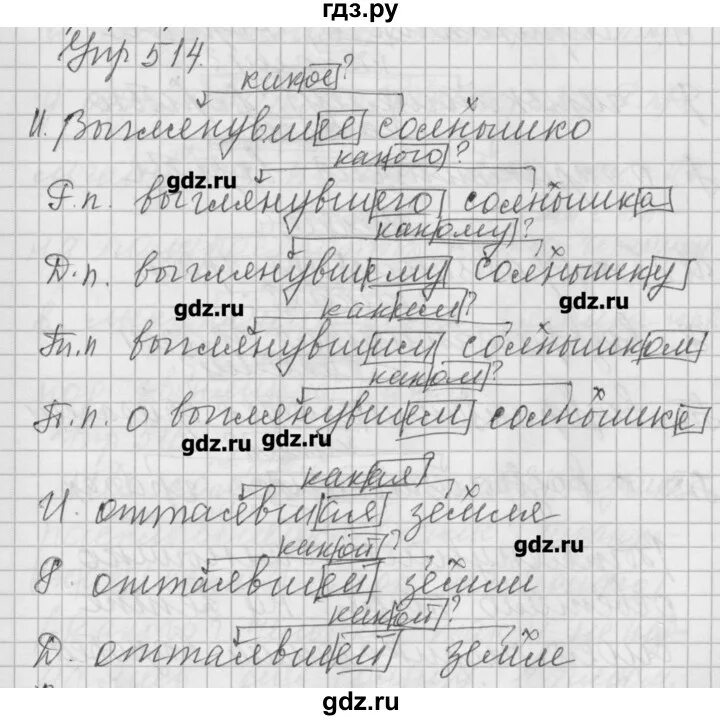 гдз.ру
Упр 514.
какое?
И. Выглянувшее солнышко
какого?
gdz.ru
Р.п. выглянувшего солнышка
какому?
Д.п. выглянувшему солнышку
gdz.ru
gdz.ru
каким?
Тп.п выглянувшим солнышком
каком?
П.п. о выглянувшем солнышке
gdz.ru gdz.ru
какая?
И. оттаявшая земля
gdz.ru
какой?
Р. оттаявшей земли
какой?
Д. оттаявшей земле
gdz.ru